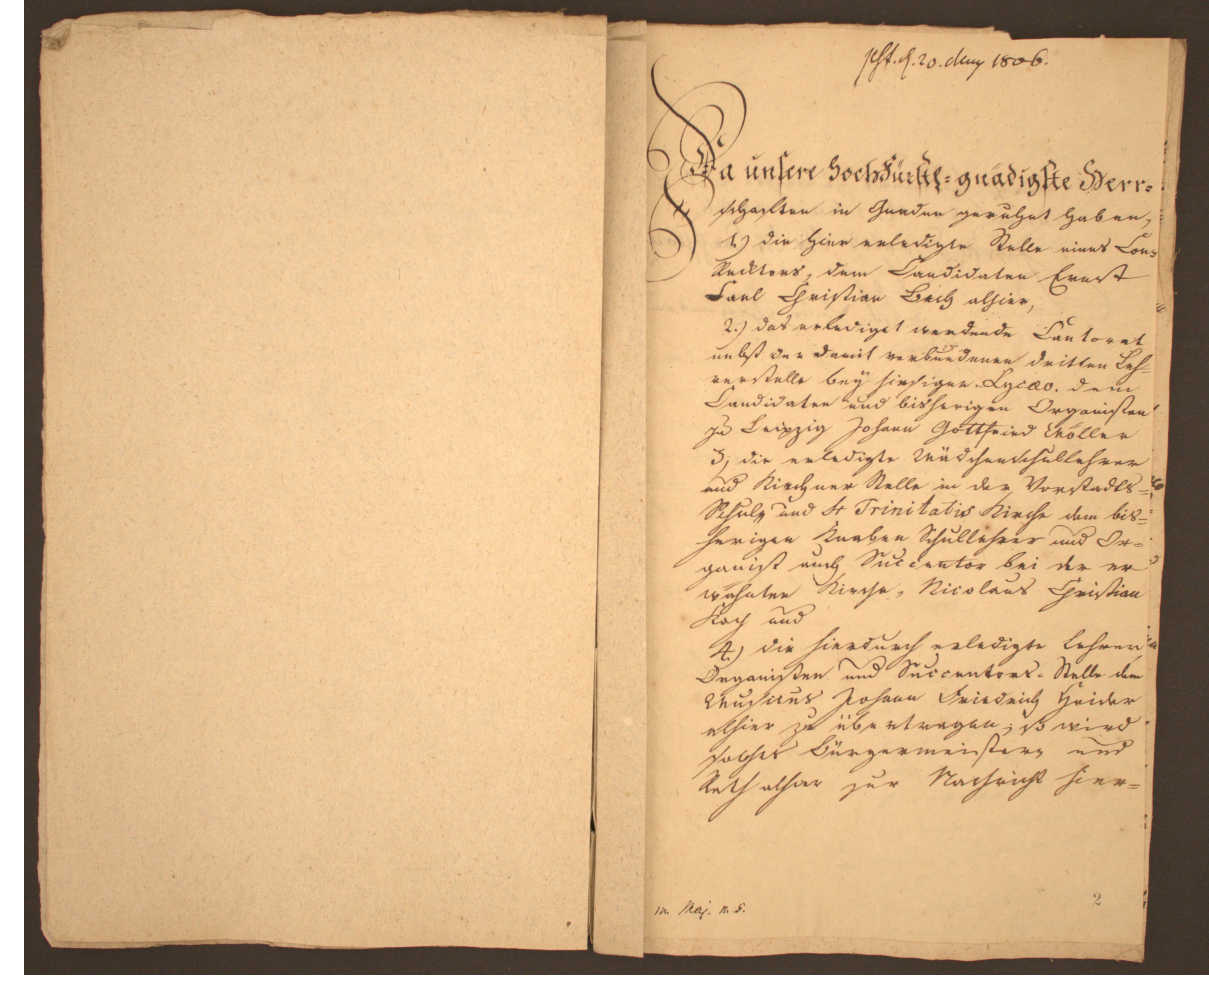 pſt. d. 20. May 1806.
Da unsere Hochfürstl=gnädigste Herr=
schaften in Gnaden geruhet haben,
1.) die hier erledigte Stelle eines Con=
Recktors, dem Candidaten Ernst
Carl Christian Bach alhier,
2.) das erlediget werdende Cantorat
nebst der damit verbundenen dritten Leh=
rerstelle bey hiesigen Lycæo. dem
Candidaten und bisherigen Organisten
zu Leipzig Johann Gottfried Möller
3, die erledigte Mädchenschullehrer
und Kirchner Stelle in der Vorstadts=
Schule und St Trinitatis Kirche dem bis=
herigen Knaben Schullehrer und Or=
ganist auch Succentor bei der er
wähnten Kirche, Nicolaus Christian
Koch und
4.) die hierdurch erledigte Lehrer
Organisten und Succentors-Stelle dem
Musicus Johann Friedrich
alhier zu übertragen; so wird
solches Bürgermeistern und
Rath alhier zur Nachricht hier=
m. 
2